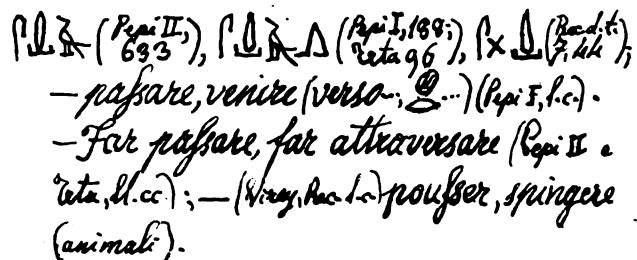 — (Pepi II, 633), (Pepi I, 188; Teta 96), (Rec.d.t. 7,44);
— paſsare, venire (verso..; ...) (Pepi I, l.c.).
— Far paſsare, far attraversare (Pepi II e
Teta, ll.cc.); — (Virey, Rec. l.c.) pouſser, spingere
(animali).